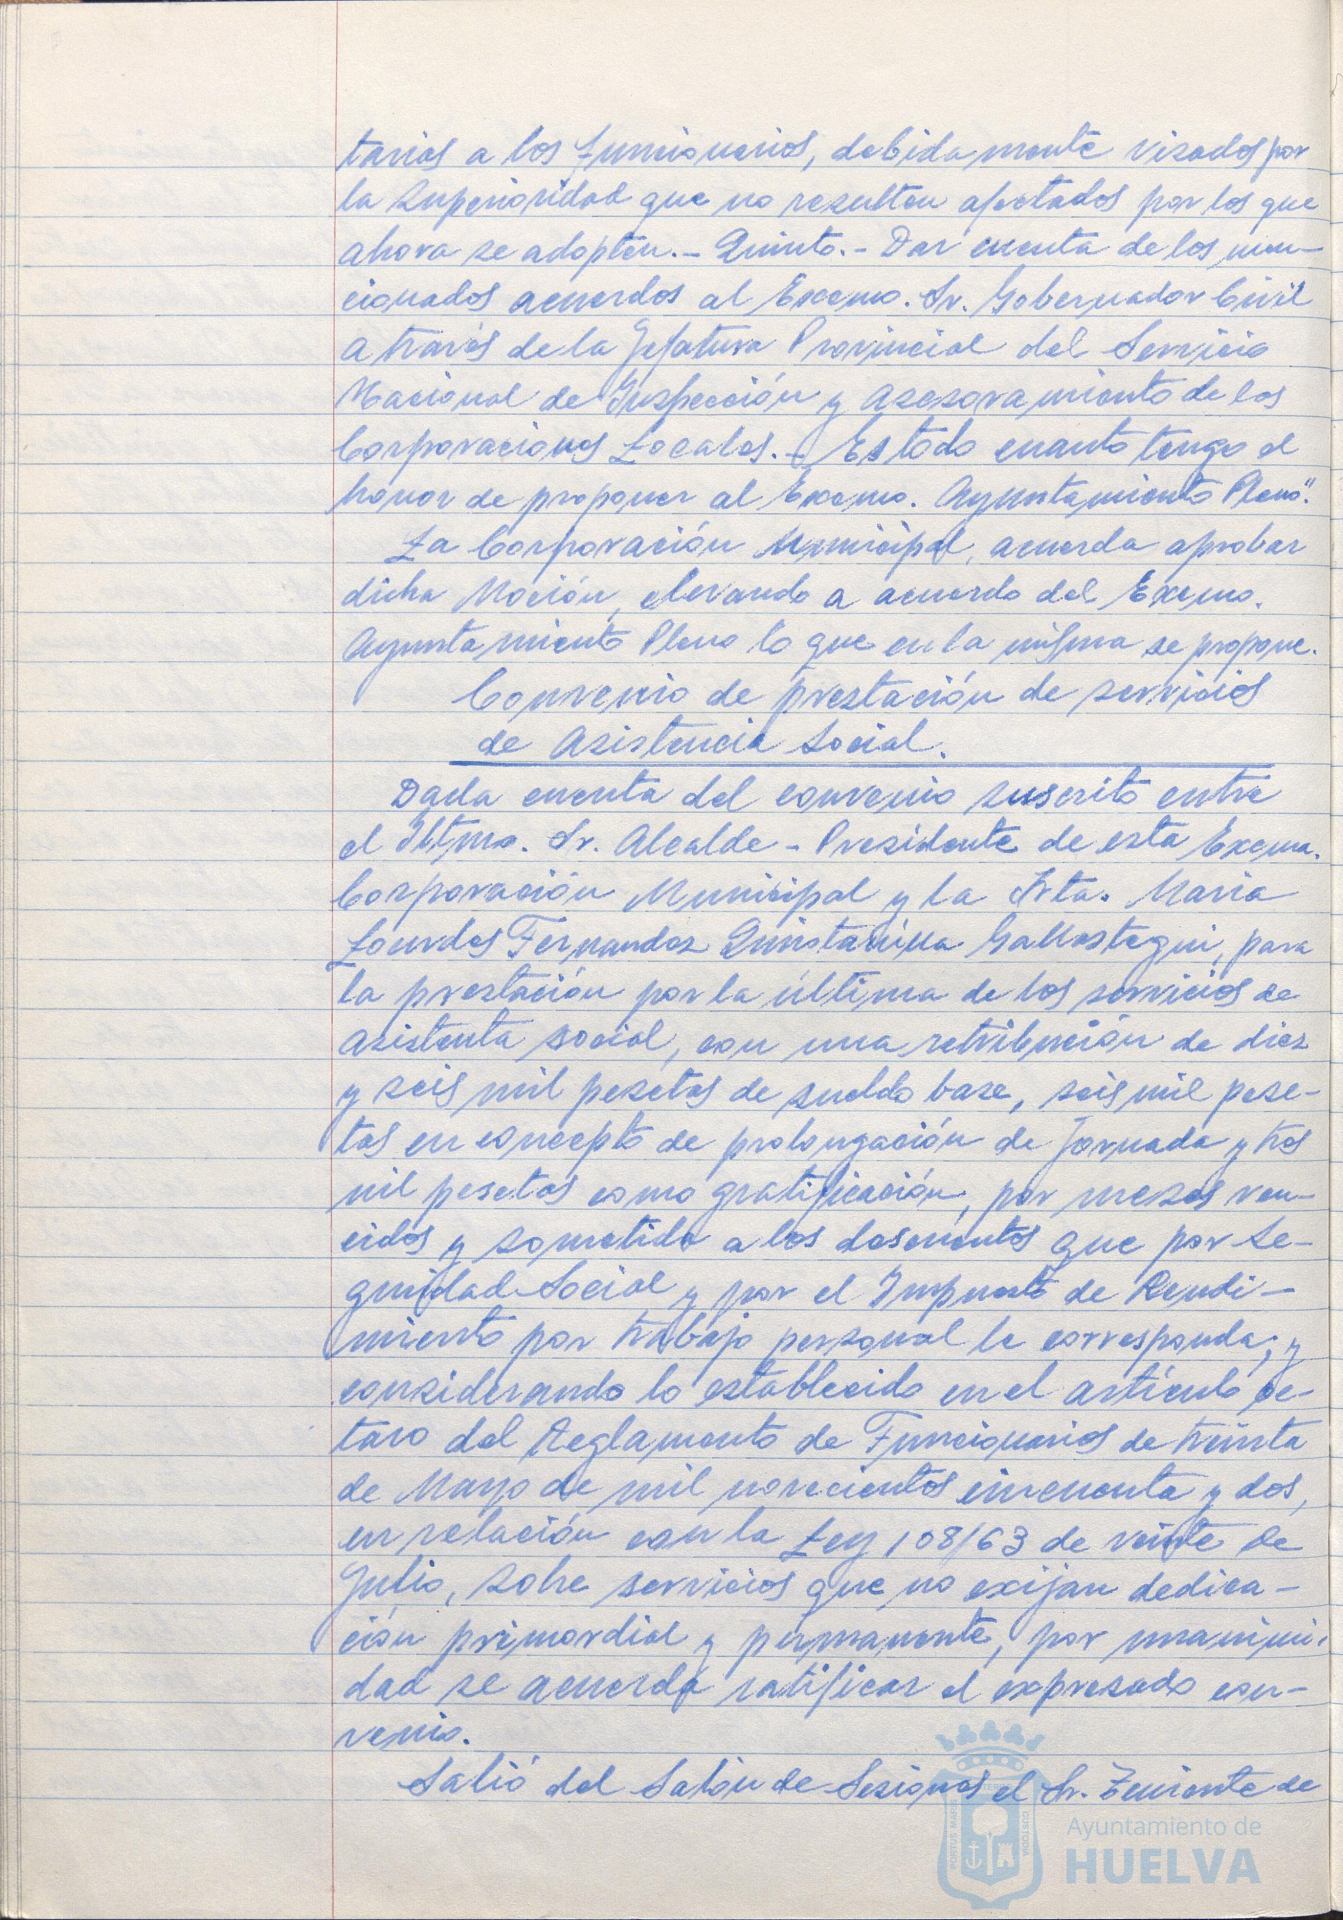 tarios a los funcionarios, debidamente visados por
la Superioridad que no resulten afectados por los que
ahora se adopten.- Quinto.- Dar cuenta de los men-
cionados acuerdos al Excmo. Sr. Gobernador Civil
a través de la Jefatura Provincial del Servicio
Nacional de Inspección y Asesoramiento de las
Corporaciones Locales.- Es todo cuanto tengo el
honor de proponer al Excmo. Ayuntamiento Pleno".
La Corporación Municipal, acuerda aprobar
dicha Moción, elevando a acuerdo del Excmo.
Ayuntamiento Pleno lo que en la misma se propone.
Convenio de prestación de servicios
de Asistencia Social.
Dada cuenta del convenio suscrito entre
el Iltmo. Sr. Alcalde - Presidente de esta Excma.
Corporación Municipal y la Srta. Maria
Lourdes Fernandez Quintanilla Gallastegui, para
la prestación por la última de los servicios de
asistenta social, con una retribución de diez
y seis mil pesetas de sueldo base, seis mil pese-
tas en concepto de prolongación de Jornada y tres
mil pesetas como gratificación, por meses ven-
cidos y sometida a los descuentos que por Se-
guridad Social y por el Impuesto de Rendi-
miento por trabajo personal le corresponda; y
considerando lo establecido en el artículo oc-
tavo del Reglamento de Funcionarios de treinta
de Mayo de mil novecientos cincuenta y dos,
en relación con la Ley 108/63 de veinte de
Julio, sobre servicios que no exijan dedica-
ción primordial y permanente, por unanimi-
dad se acuerda ratificar el expresado con-
venio.
Salió del Salón de Sesiones el Sr. Teniente de
PORTUS MARIS CUSTODIA
Ayuntamiento de
HUELVA